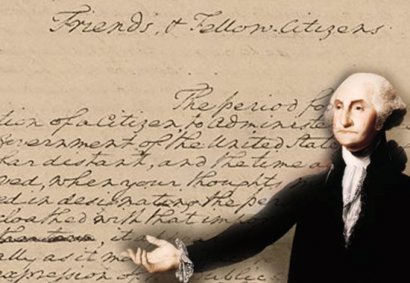 Friends, & Fellow-Citizens
The period fo
tion of a Citizen, to Administe
overnment of the United States
far distant, and the time a
ved, when your thoughts
ed in designating the pe
cloathed with that impo
it
ally, as it m
expression of public